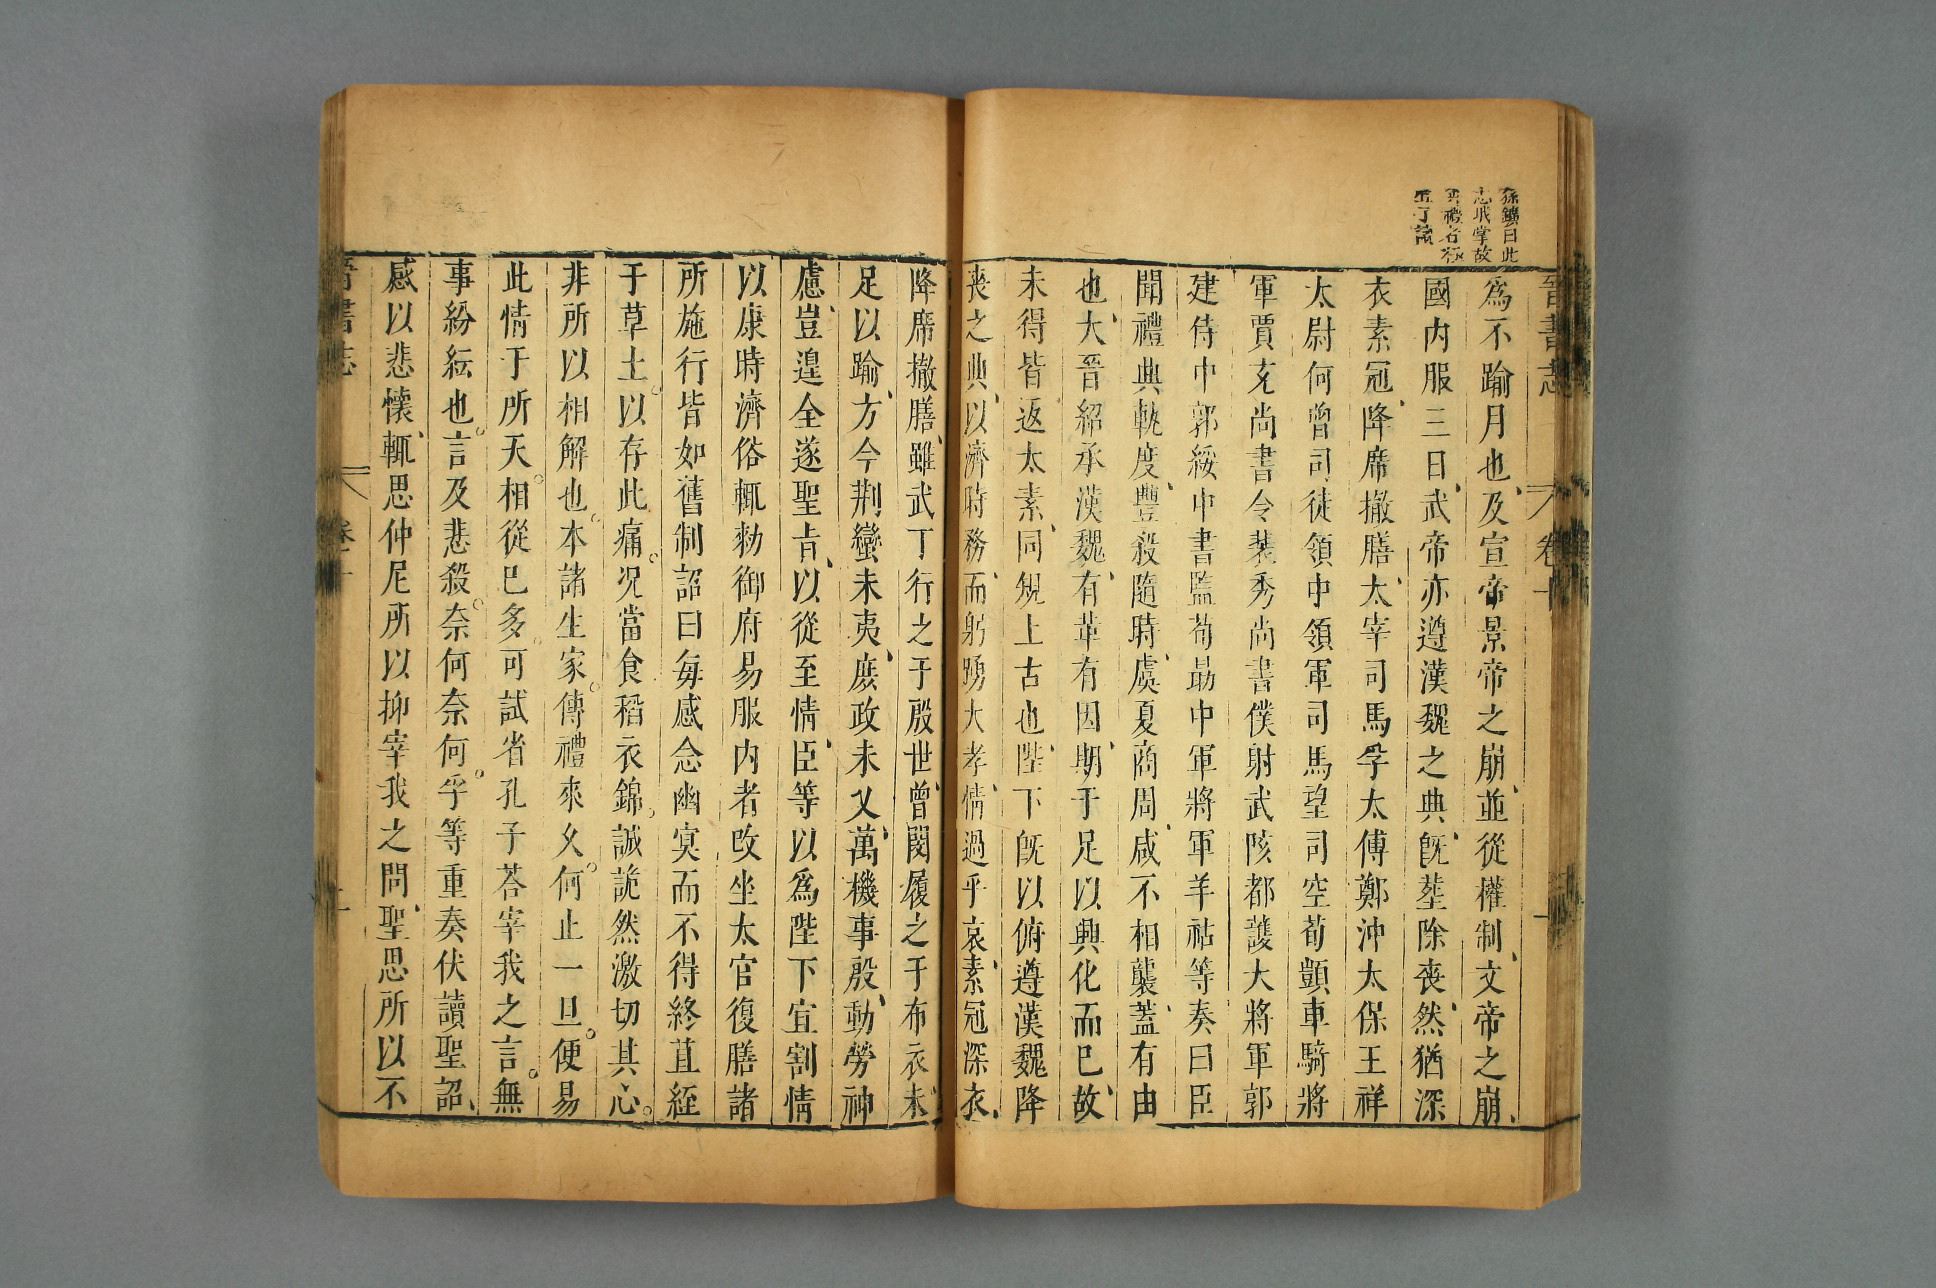 孫鑛曰此
晉書志
卷十
為不踰月也及宣帝景帝之崩並從權制文帝之崩
國內服三日武帝亦遵漢魏之典既塟除喪然猶深
衣素冠降席撤膳太宰司馬孚太傅鄭沖太保王祥
太尉何曾司徒領中領軍司馬望司空荀顗車騎將
軍賈充尚書令裴秀尚書僕射武陔都護大將軍郭
建侍中郭綏中書監荀勗中軍將軍羊祜等奏曰臣
聞禮典軌度豐殺隨時虞夏商周咸不相襲蓋有由
也大晉紹承漢魏有革有因期于足以興化而已故
未得皆返太素同䂓上古也陛下既以俯遵漢魏降
喪之典以濟時務而躬蹈大孝情過乎哀素冠深衣
降席撤膳雖武丁行之于殷世曾閔履之于布衣未
足以踰方今荆蠻未夷庶政未乂萬機事殷動勞神
慮豈遑全遂聖旨以從至情臣等以為陛下宜割情
以康時濟俗輒勑御府易服內者改坐太官復膳諸
所施行皆如舊制詔曰每感念幽冥而不得終苴絰
于草土以存此痛况當食稻衣錦誠詭然激切其心
非所以相解也本諸生家傳禮來久何止一旦便易
此情于所天相從巳多可試省孔子荅宰我之言無
事紛紜也言及悲殺奈何奈何孚等重奏伏讀聖詔
感以悲懷輒思仲尼所以抑宰我之問聖思所以不
晉書志
卷十